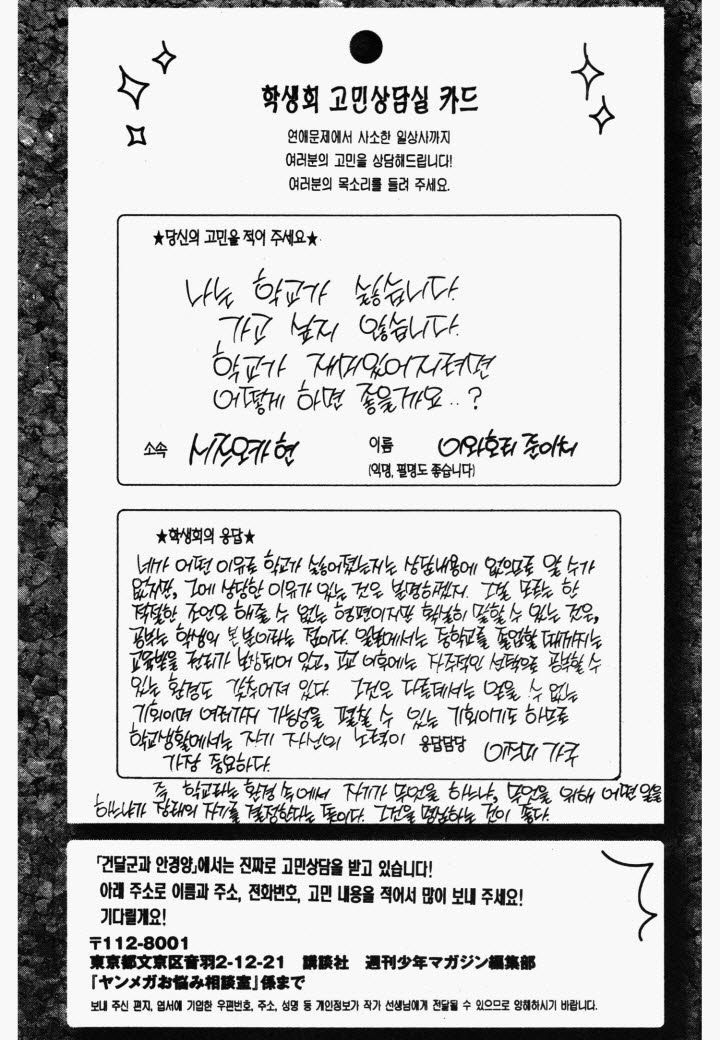 학생회 고민상담실 카드
연애문제에서 사소한 일상사까지
여러분의 고민을 상담해드립니다!
여러분의 목소리를 들려 주세요.
★당신의 고민을 적어 주세요★
나는 학교가 싫습니다.
가고 싶지 않습니다.
학교가 재미있어지려면
어떻게 하면 좋을까요..?
소속 시즈오카현 이름 이와호리 준이치
(익명, 필명도 좋습니다)
★학생회의 응답★
네가 어떤 이유로 학교가 싫어졌는지는 상담내용에 없으므로 알 수가
없지만, 그에 상당한 이유가 있는 것은 분명하겠지. 그걸 모르는 한
적절한 조언은 해줄 수 없는 형편이지만 확실히 말할 수 있는 것은,
공부는 학생의 본분이라는 점이다. 일본에서는 중학교를 졸업할 때까지는
교육받을 권리가 보장되어 있고, 고교 이후에는 자주적인 선택으로 공부할 수
있는 환경도 갖추어져 있다. 그것은 다른데서는 얻을 수 없는
기회이며 여러가지 가능성을 펼칠 수 있는 기회이기도 하므로
학교생활에서는 자기 자신의 노력이 응답담당
가장 중요하다.
즉 학교라는 환경 속에서 자기가 무엇을 하느냐, 무엇을 위해 어떤 일을
하느냐가 장래의 자기를 결정한다는 뜻이다. 그것을 명심하는 것이 좋다.
「건달군과 안경양」에서는 진짜로 고민상담을 받고 있습니다!
아래 주소로 이름과 주소, 전화번호, 고민 내용을 적어서 많이 보내 주세요!
기다릴게요!
〒112-8001
東京都文京区音羽2-12-21 講談社 週刊少年マガジン編集部
「ヤンメガお悩み相談室」係まで
보내 주신 편지, 엽서에 기입한 우편번호, 주소, 성명 등 개인정보가 작가 선생님에게 전달될 수 있으므로 양해하시기 바랍니다.